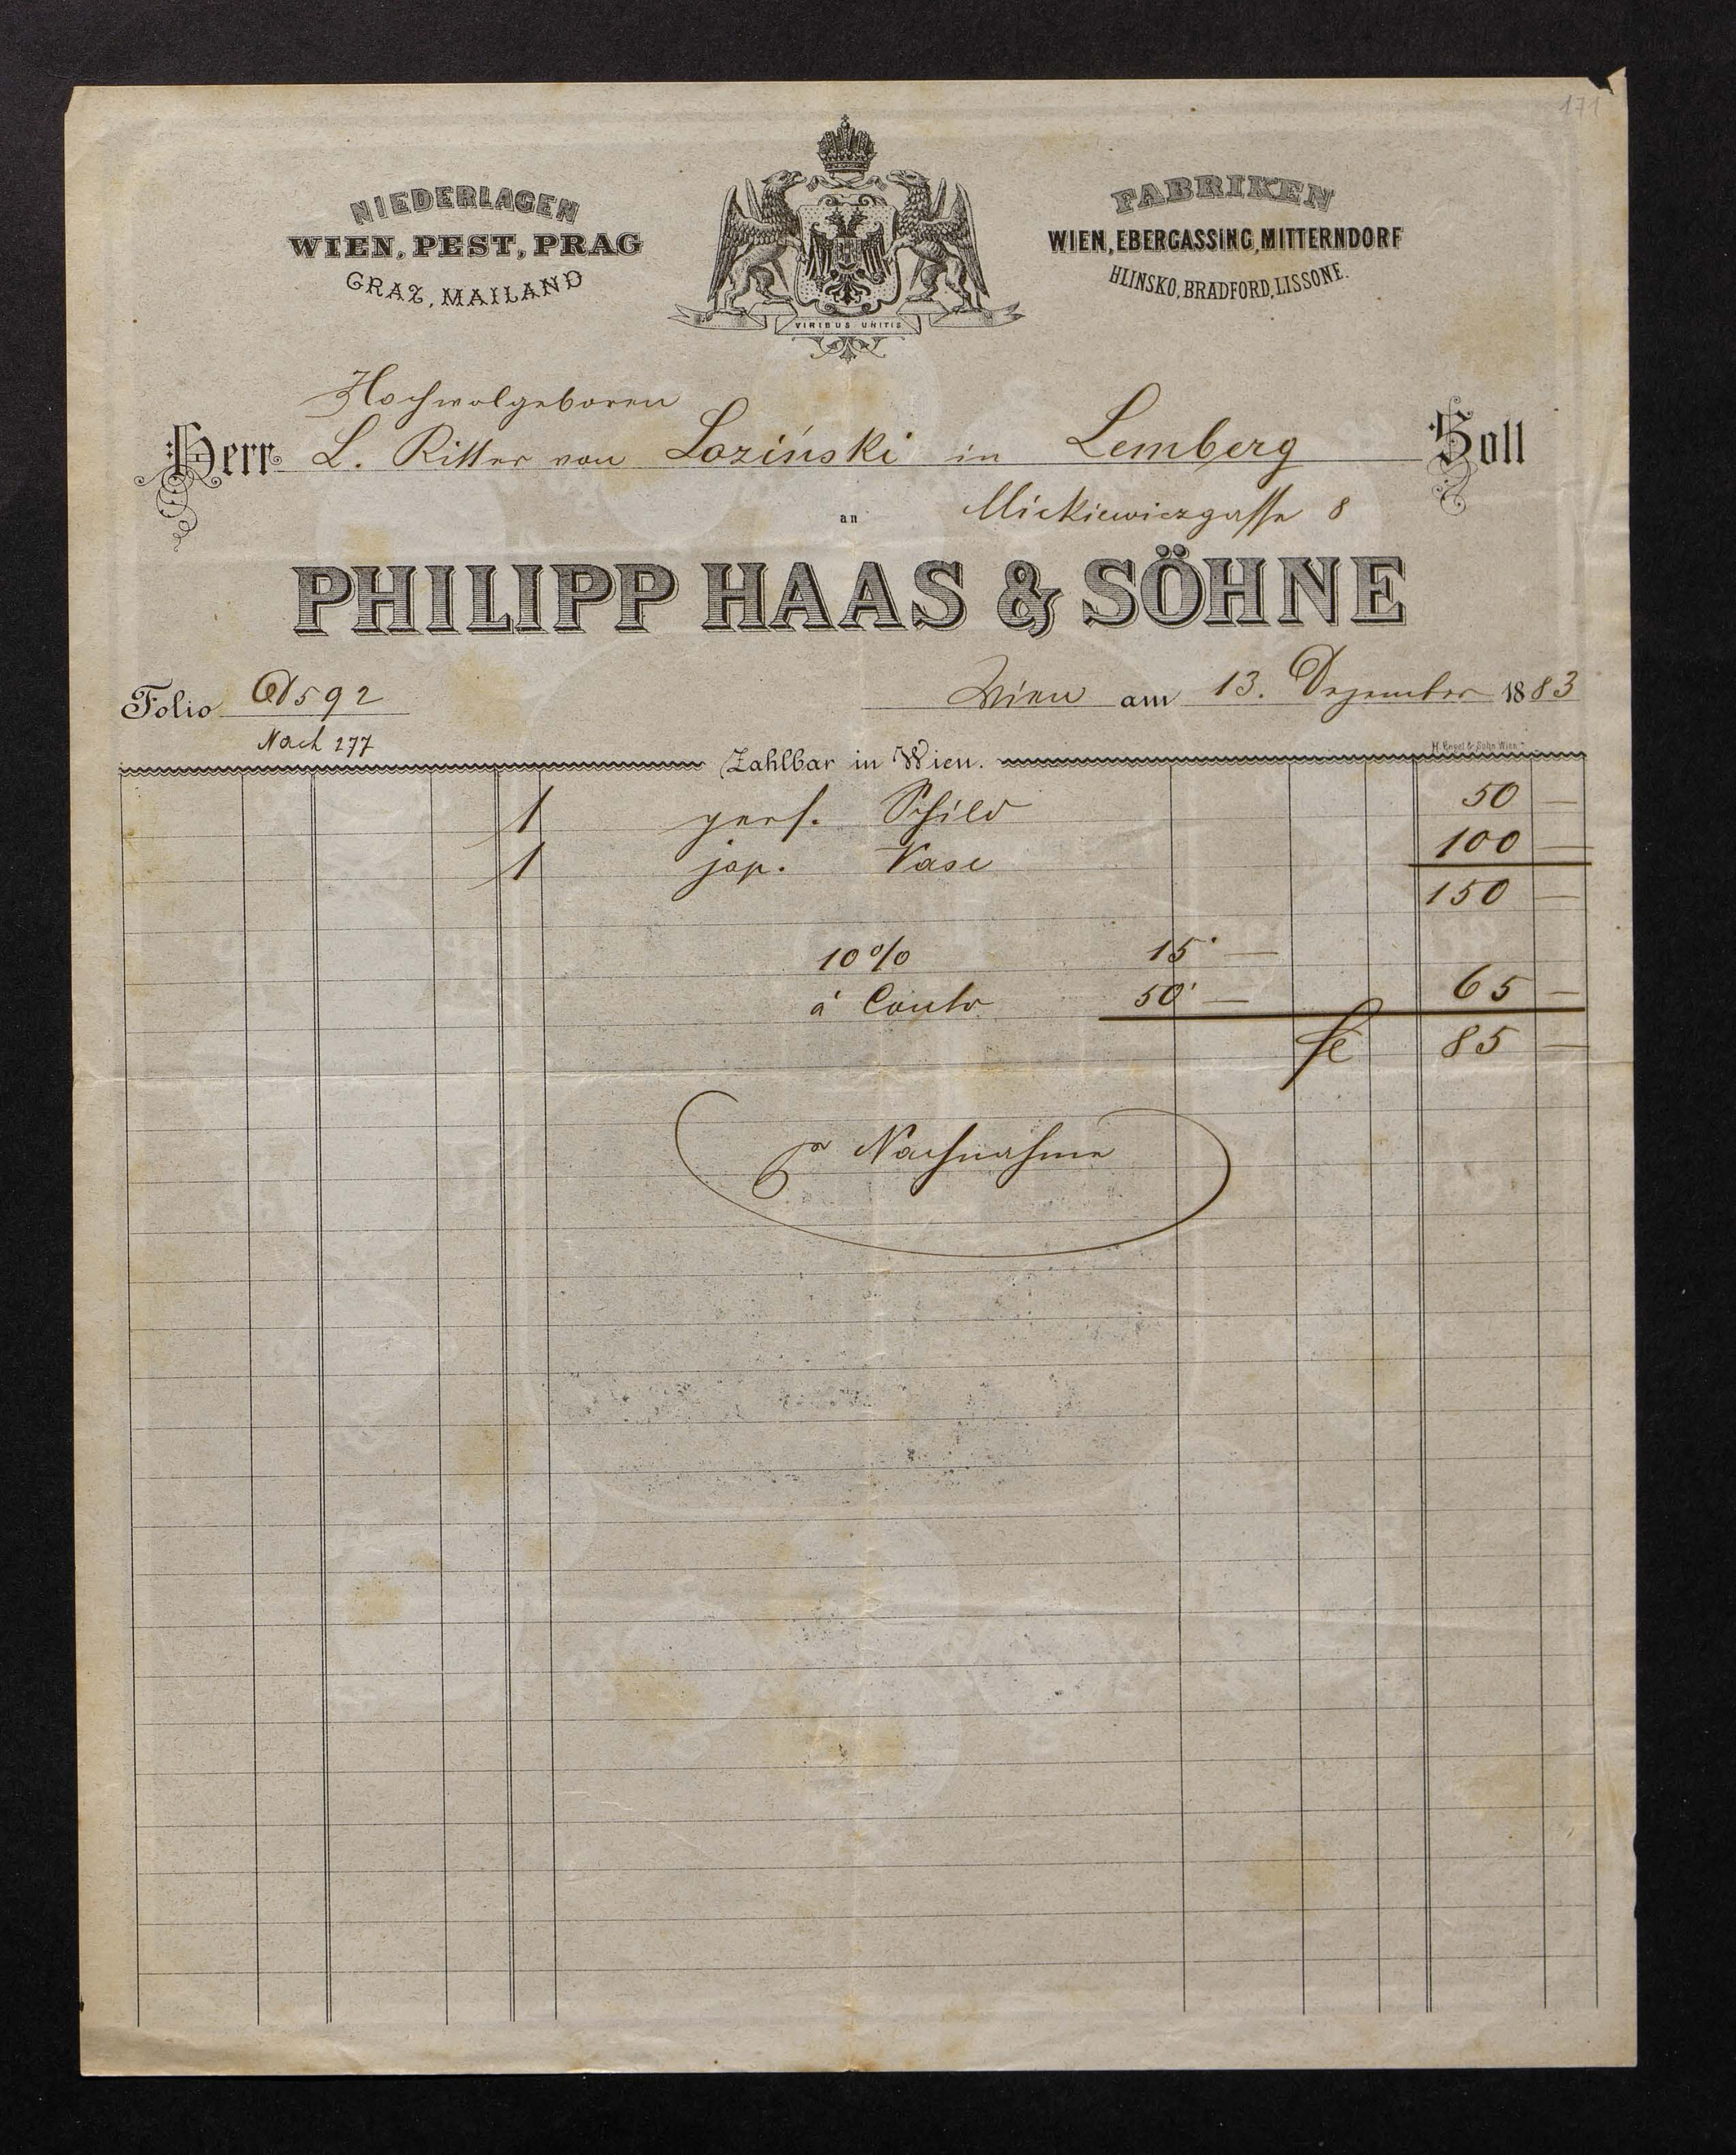 171
NIEDERLAGEN
WIEN, PEST, PRAG
GRAZ, MAILAND
VIRIBUS UNITIS
FABRIKEN
WIEN, EBERGASSING, MITTERNDORF
HLINSKO, BRADFORD, LISSONE.
Hochwolgeboren
Herr L. Ritter von Loziński in Lemberg Soll
an Mickiewiczgasse 8
PHILIPP HAAS & SÖHNE
Folio 592
Wien am 13. Dezember 1883
Nach 277
H. Engel & Sohn Wien
Zahlbar in Wien.
1 pers. Schild 50 —
1 jap. Vase 100 —
150 —
10% 15 —
á Conto 50 — 65 —
85 —
pr Nachnahme